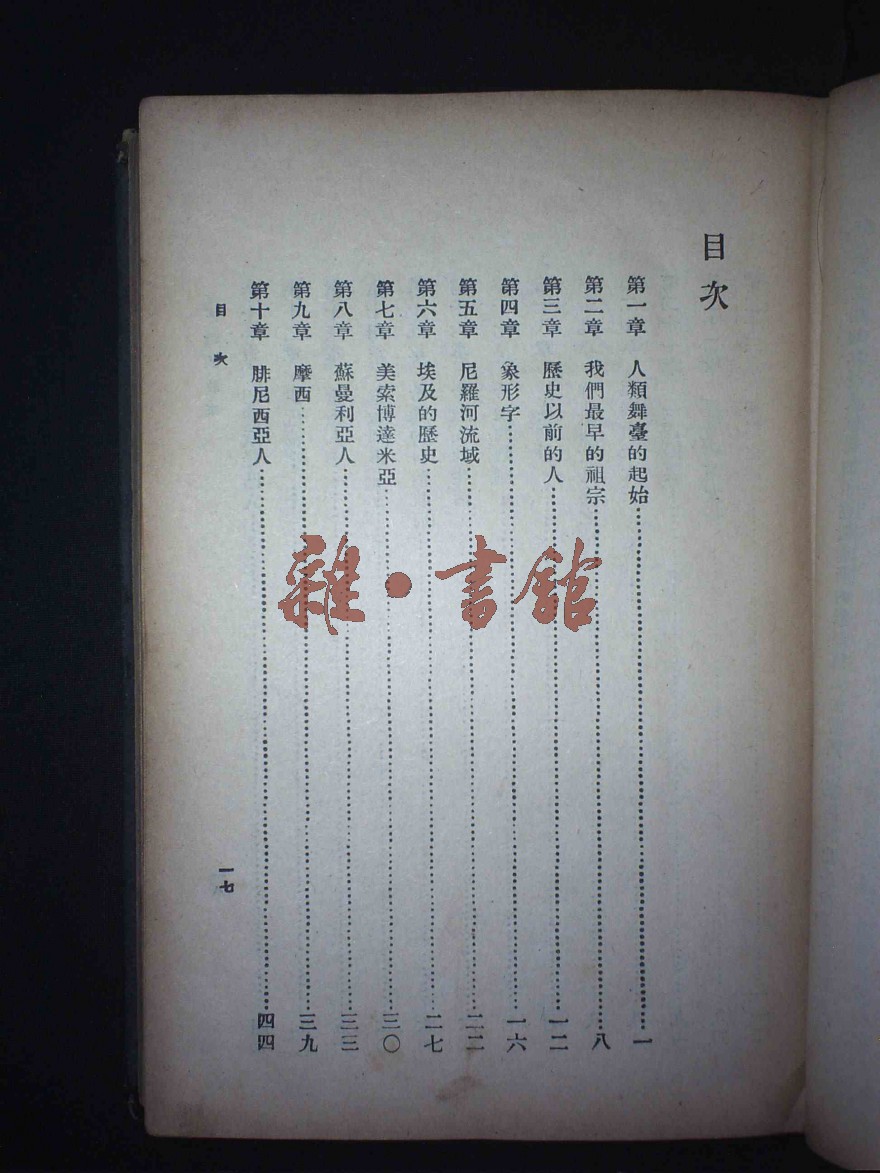 目次
第一章 人類舞臺的起始………一
第二章 我們最早的祖宗………八
第三章 歷史以前的人………一二
第四章 象形字………一六
第五章 尼羅河流域………二二
第六章 埃及的歷史………二七
第七章 美索博達米亞………三〇
第八章 蘇曼利亞人………三三
第九章 摩西………三九
第十章 腓尼西亞人………四四
目次 一七
雜·書館